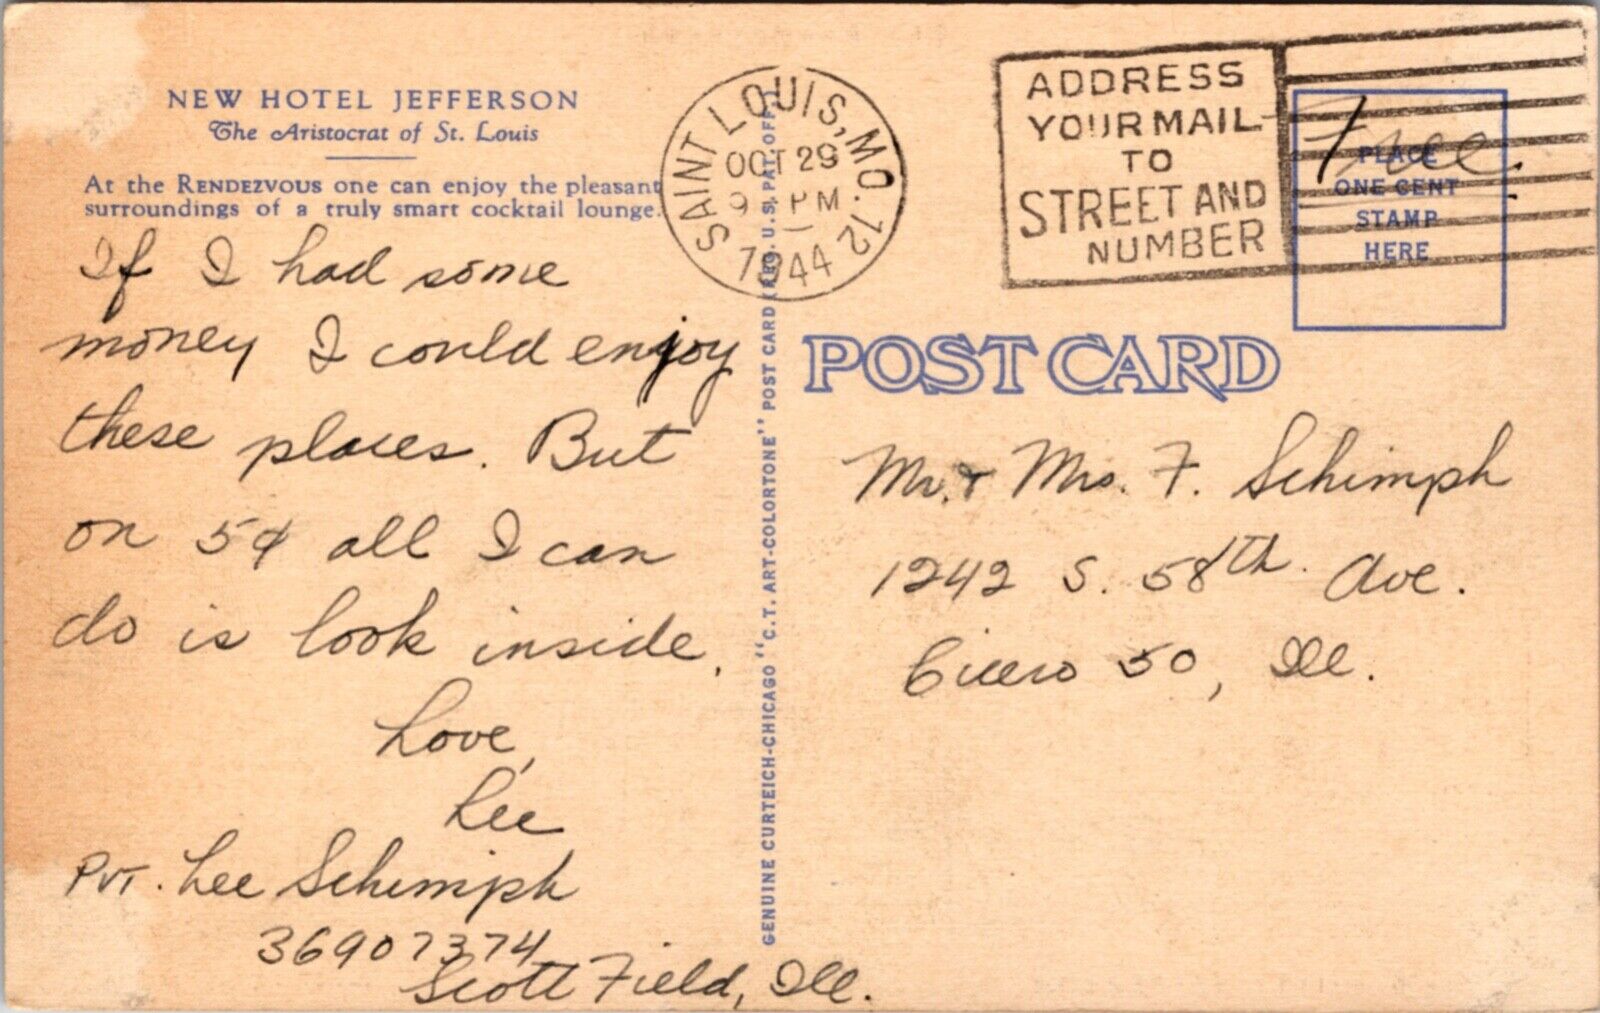 NEW HOTEL JEFFERSON
The Aristocrat of St. Louis
At the RENDEZVOUS one can enjoy the pleasant
surroundings of a truly smart cocktail lounge.
If I had some
money I could enjoy
these places. But
on 5¢ all I can
do is look inside.
Love,
Lee
PVT. Lee Schimph
36907374
Scott Field, Ill.
GENUINE CURTEICH-CHICAGO "C.T. ART-COLORTONE" POST CARD (REG. U.S. PAT. OFF.)
SAINT LOUIS, MO. 12
OCT 29
9 PM
1944
ADDRESS
YOUR MAIL
TO
STREET AND
NUMBER
Free.
PLACE
ONE CENT
STAMP
HERE
POST CARD
Mr. & Mrs. F. Schimph
1242 S. 58th. Ave.
Cicero 50, Ill.